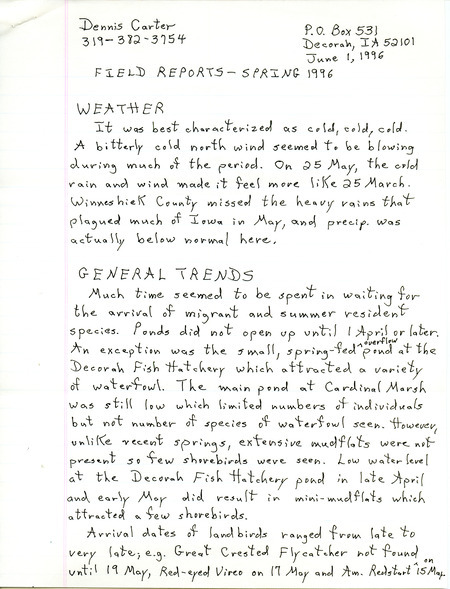 Dennis Carter
319-382-3754
P.O. Box 531
Decorah, IA 52101
June 1, 1996
FIELD REPORTS - SPRING 1996
WEATHER
It was best characterized as cold, cold, cold.
A bitterly cold north wind seemed to be blowing
during much of the period. On 25 May, the cold
rain and wind made it feel more like 25 March.
Winneshiek County missed the heavy rains that
plagued much of Iowa in May, and precip. was
actually below normal here.
GENERAL TRENDS
Much time seemed to be spent in waiting for
the arrival of migrant and summer resident
species. Ponds did not open up until 1 April or later.
An exception was the small, spring-fed ^overflow pond at the
Decorah Fish Hatchery which attracted a variety
of waterfowl. The main pond at Cardinal Marsh
was still low which limited numbers of individuals
but not number of species of waterfowl seen. However,
unlike recent springs, extensive mudflats were not
present so few shorebirds were seen. Low water level
at the Decorah Fish Hatchery pond in late April
and early May did result in mini-mudflats which
attracted a few shorebirds.
Arrival dates of landbirds ranged from late to
very late; e.g. Great Crested Flycatcher not found
until 19 May, Red-eyed Vireo on 17 May and Am. Redstart ^on 15 May.